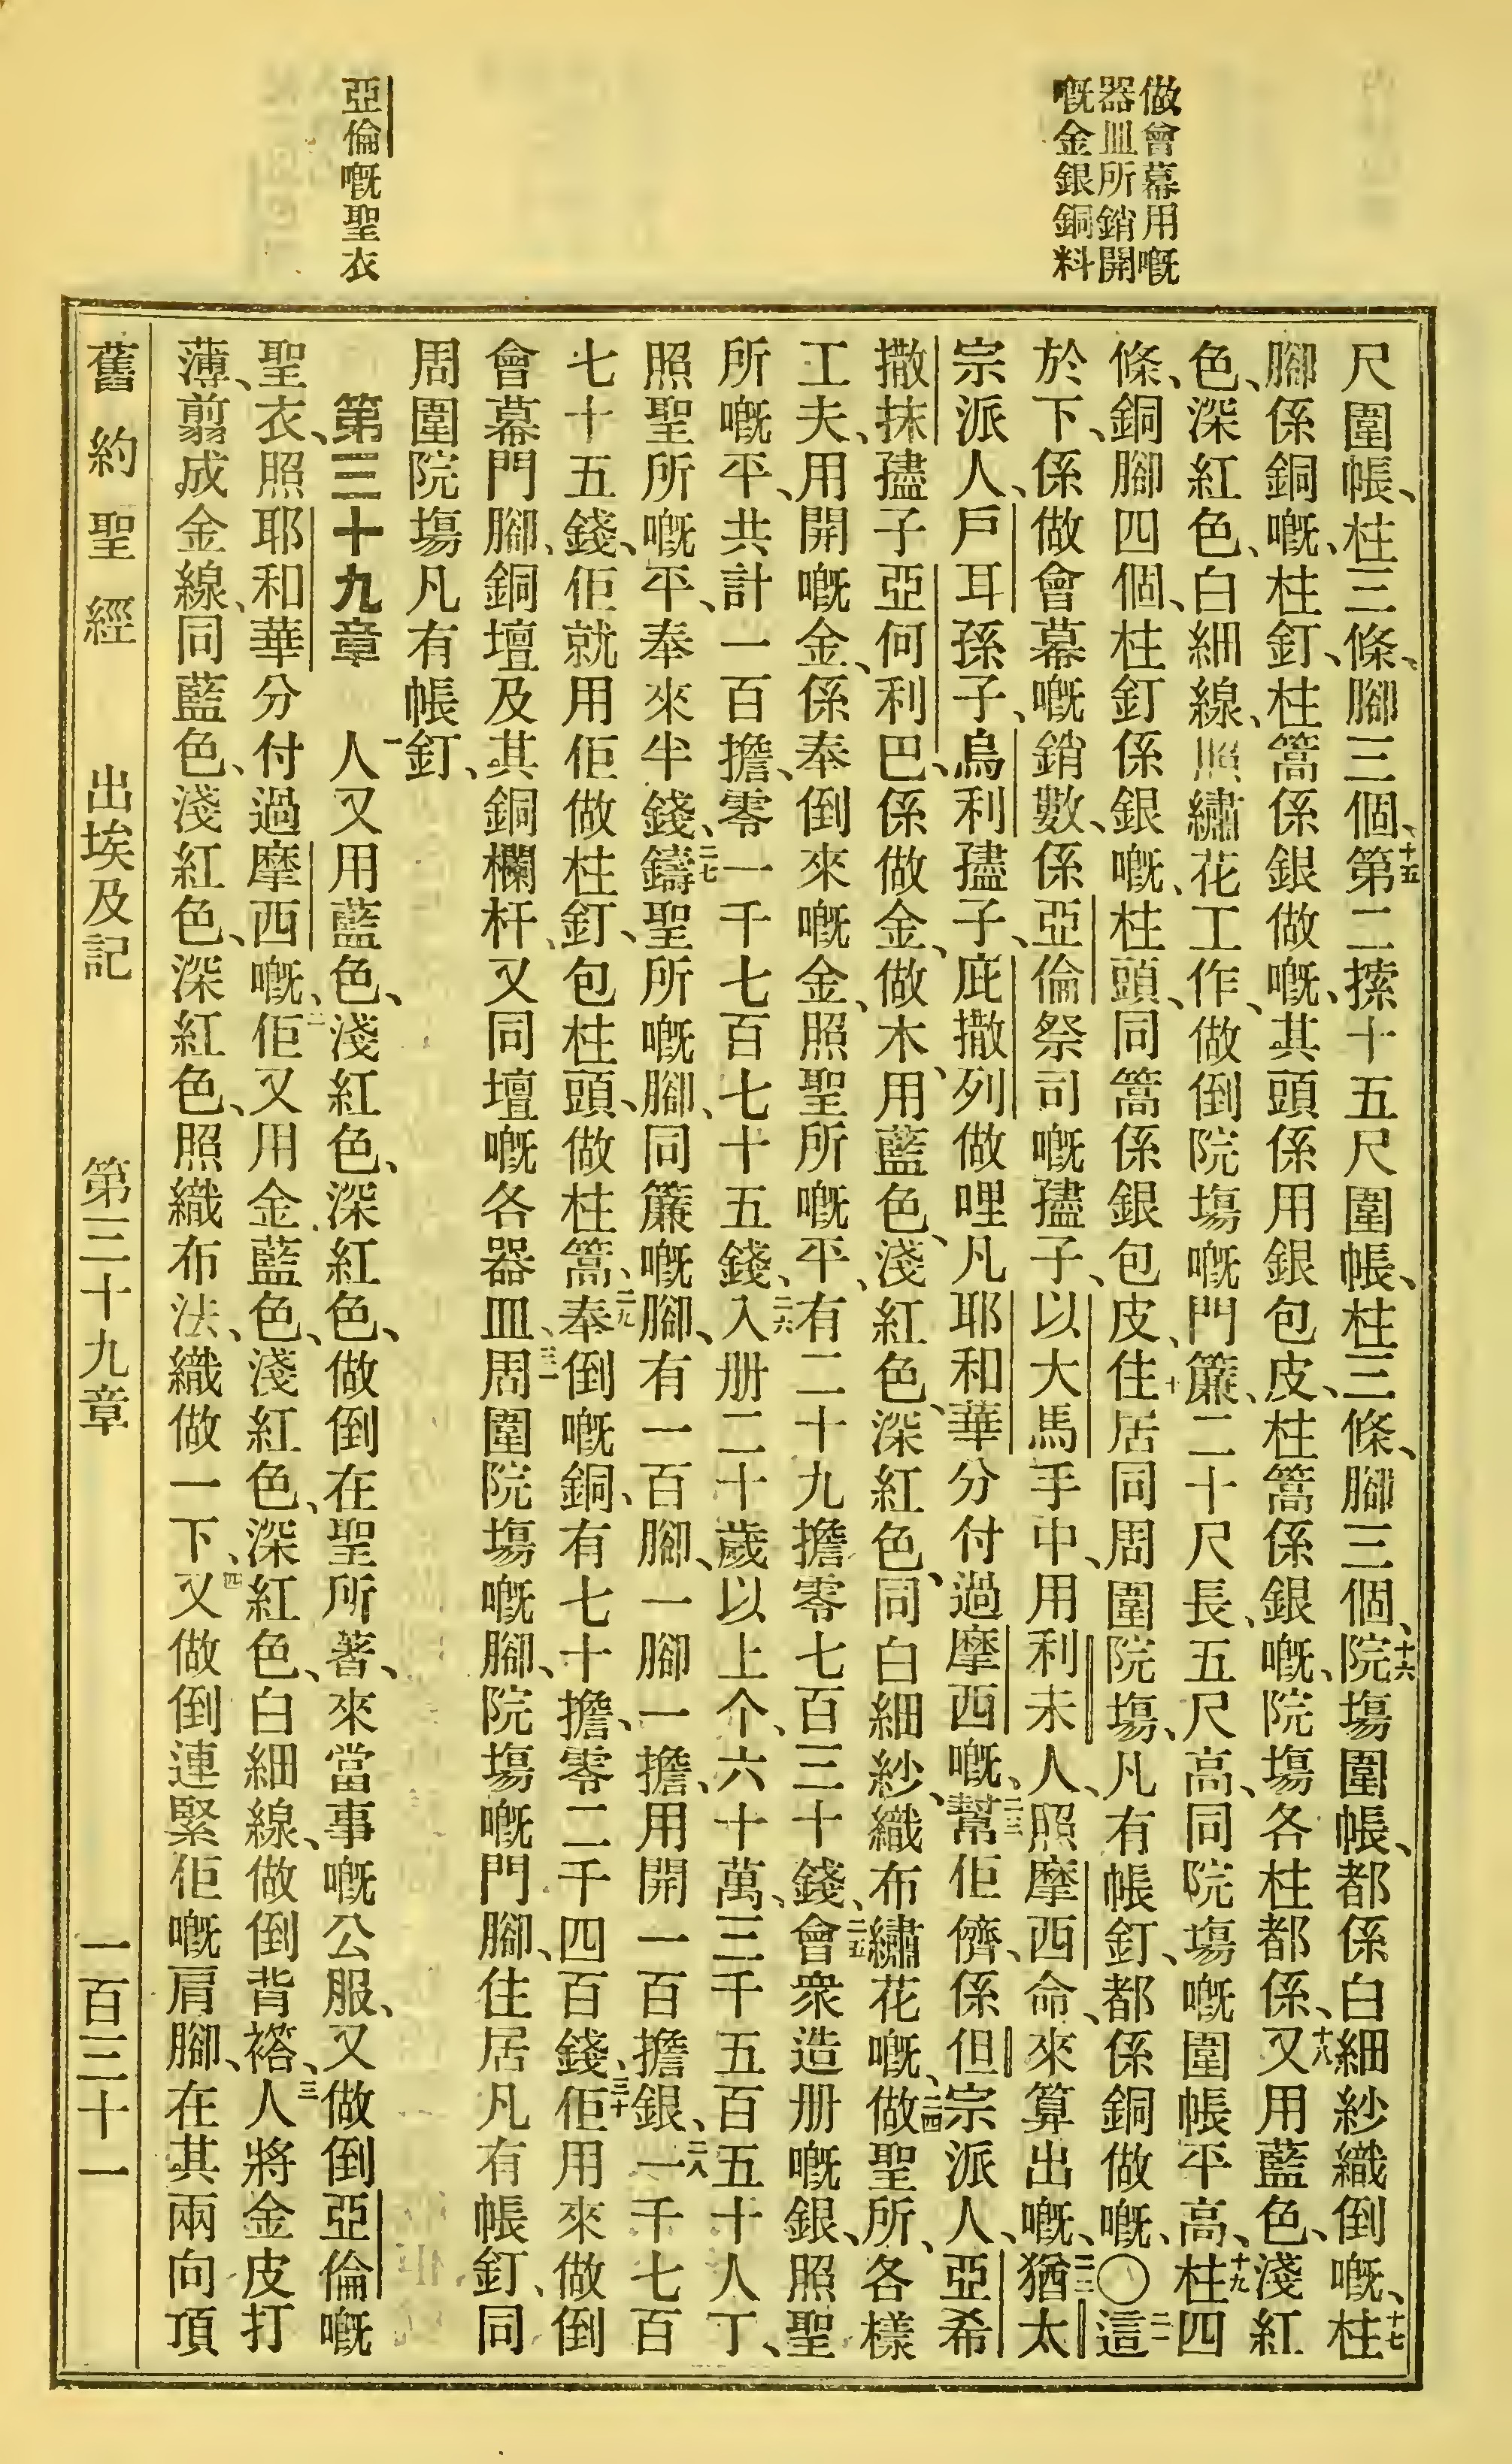 做會幕用嘅
器皿所銷開
嘅金銀銅料
亞倫嘅聖衣
尺圍帳、柱三條、腳三個、十五第二搽十五尺圍帳、柱三條、腳三個、十六院塲圍帳、都係白細紗織倒嘅、十七柱
腳係銅嘅、柱釘、柱篙係銀做嘅、其頭係用銀包皮、柱篙係銀嘅、院塲各柱都係、十八又用藍色、淺紅
色、深紅色、白細線、照繡花工作、做倒院塲嘅門簾、二十尺長、五尺高、同院塲嘅圍帳平高、十九柱四
條、銅腳四個、柱釘係銀嘅、柱頭、同篙係銀包皮、二十住居同周圍院塲、凡有帳釘、都係銅做嘅、〇二一這
於下、係做會幕嘅銷數、係亞倫祭司嘅孻子、以大馬手中、用利未人、照摩西命、來算出嘅、二二猶太
宗派人、戶耳孫子、烏利孻子、庇撒列做哩凡耶和華分付過摩西嘅、二三幫佢儕、係但宗派人、亞希
撒抹孻子亞何利巴、係做金、做木、用藍色、淺紅色、深紅色、同白細紗、織布繡花嘅、二四做聖所、各樣
工夫、用開嘅金、係奉倒來嘅金、照聖所嘅平、有二十九擔零七百三十錢、二五會衆造册嘅銀、照聖
所嘅平、共計一百擔、零一千七百七十五錢、二六入册二十歲以上个、六十萬、三千五百五十人丁、
照聖所嘅平、奉來半錢、二七鑄聖所嘅腳、同簾嘅腳、有一百腳、一腳一擔、用開一百擔銀、二八一千七百
七十五錢、佢就用佢做柱釘、包柱頭、做柱篙、二九奉倒嘅銅、有七十擔、零二千四百錢、三十佢用來做倒
會幕門腳、銅壇及其銅欄杆、又同壇嘅各器皿、三一周圍院塲嘅腳、院塲嘅門腳、住居凡有帳釘、同
周圍院塲凡有帳釘、
第三十九章　一人又用藍色、淺紅色、深紅色、做倒在聖所著、來當事嘅公服、又做倒亞倫嘅
聖衣、照耶和華分付過摩西嘅、二佢又用金藍色、淺紅色、深紅色、白細線、做倒背褡、三人將金皮打
薄、翦成金線、同藍色、淺紅色、深紅色、照織布法、織做一下、四又做倒連緊佢嘅肩腳、在其兩向頂
舊約聖經　出埃及記　第三十九章　一百三十一